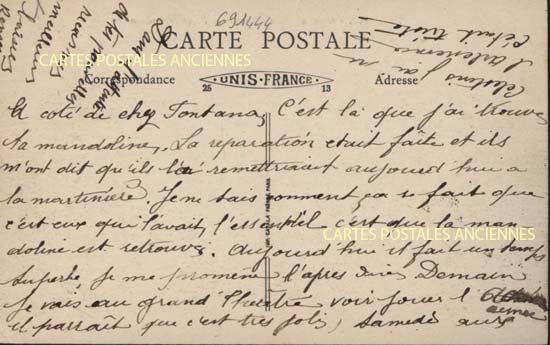 691444
CARTE POSTALE
CARTES POSTALES ANCIENNES
Correspondance
UNIS-FRANCE
25
13
Adresse
A coté de chez Fontanas, C'est là que j'ai trouvé
la mandoline. La reparation etait faite et ils
m'ont dit qu'ils la remettraient aujourd'hui a
la martinière. Je ne sais comment ça se fait que
c'est eux qui l'avait, l'essentiel c'est que la man
CARTES POSTALES ANCIENNES
doline est retrouvée. Aujourd'hui il fait un temps
superbe je me promene l'apres diner Demain
Je vais au grand Theatre voir jouer l'
aimee
il parraît que c'est tres joli, Samedi aux
Celestins j'ai vu
l'arlesienne
c'était triste